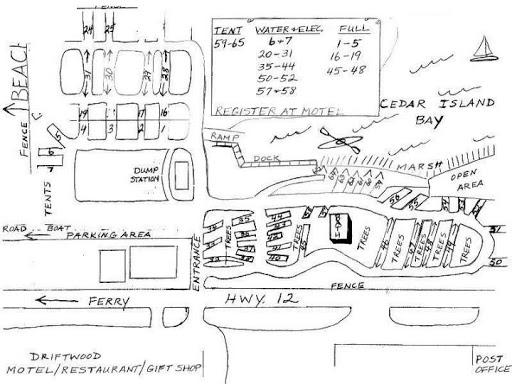 TENT WATER & ELEC. FULL
59-65 6+7 1-5
20-31 16-19
35-44 45-48
50-52
57+58
REGISTER AT MOTEL
BEACH
FENCE
TENTS
24
25
31
30
29
28
19
17
16
4
3
2
1
5
6
7
DUMP
STATION
RAMP
DOCK
CEDAR ISLAND
BAY
MARSH
OPEN
AREA
56
55
ROAD BOAT
PARKING AREA
ENTRANCE
TREES
TREES
TREES
TREES
TREES
TREES
TREES
46
47
48
49
51
50
FENCE
FERRY
HWY. 12
DRIFTWOOD
MOTEL/RESTAURANT/GIFT SHOP
POST
OFFICE